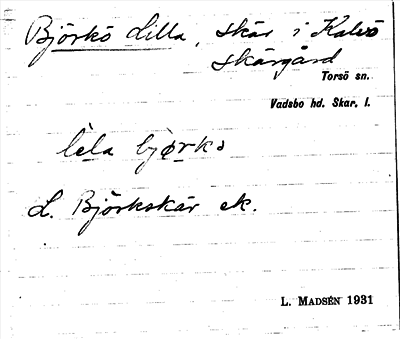 Björkö Lilla, skär i Kalvö
skärgård
Torsö sn.
Vadsbo hd. Skar. l.
lela bjørkə
L. Björkskär ek.
L. Madsén 1931